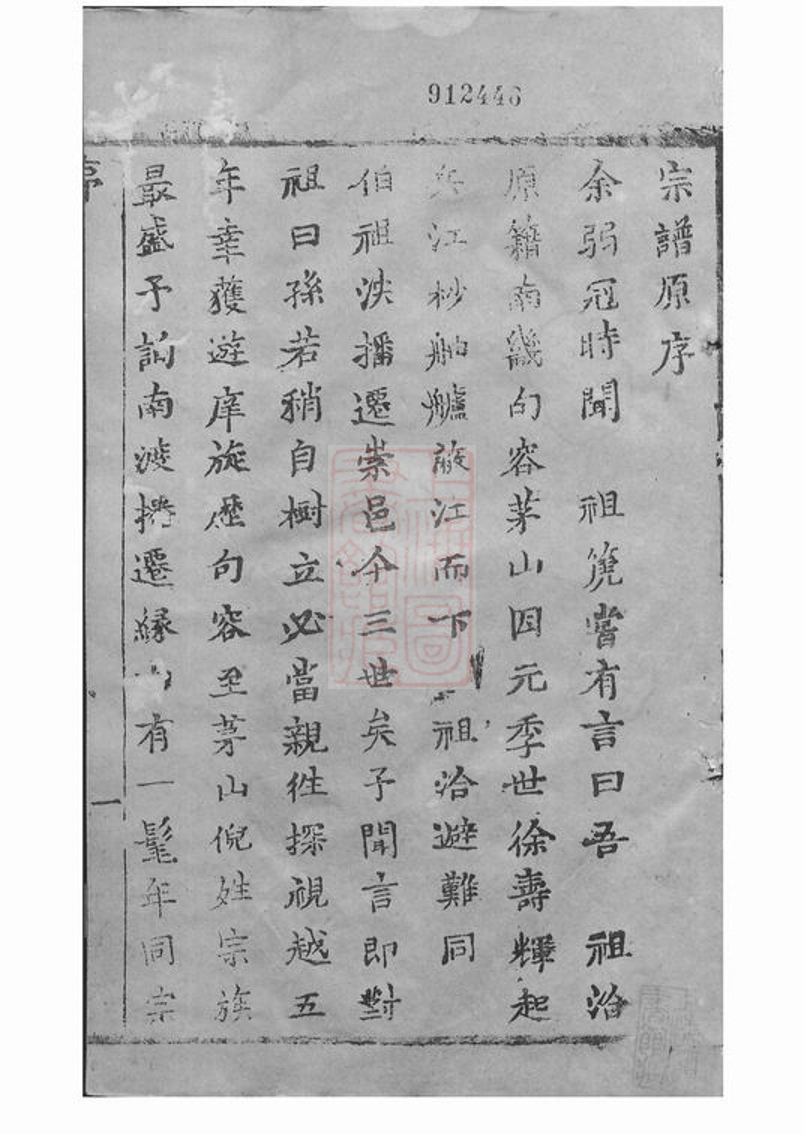 912446
宗譜原序
余弱冠時聞 祖箎嘗有言曰吾 祖治
原籍南畿句容茅山因元季世徐壽輝起
兵江杪舳艫蔽江而下 祖洽避難同
伯祖泱播遷崇邑今三世矣予聞言即對
祖曰孫若稍自樹立必當親徃探視越五
年幸獲遊庠旋歷句容至茅山倪姓宗族
最盛予詢南渡播遷緣由有一髦年同宗
序
一